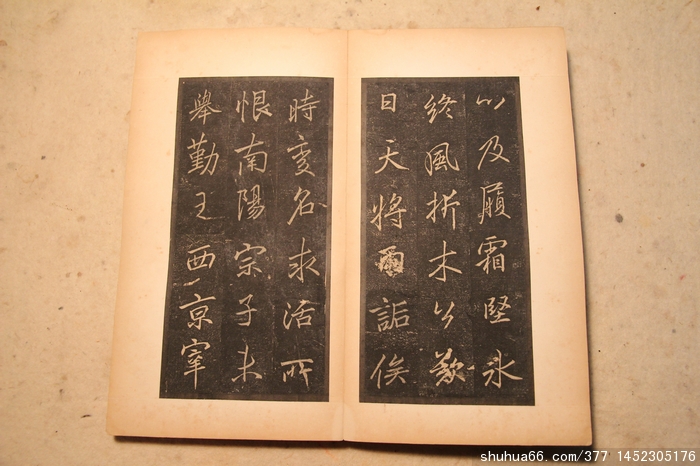 以及履霜堅冰
終風折木公歎
曰天將詬俟
時變名求活所
恨南陽宗子未
舉勤王西京宰
shuhua66.com/377 1452305176